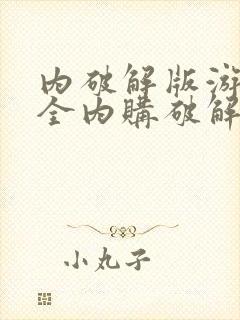 内破解版游
全内購破解
小丸子